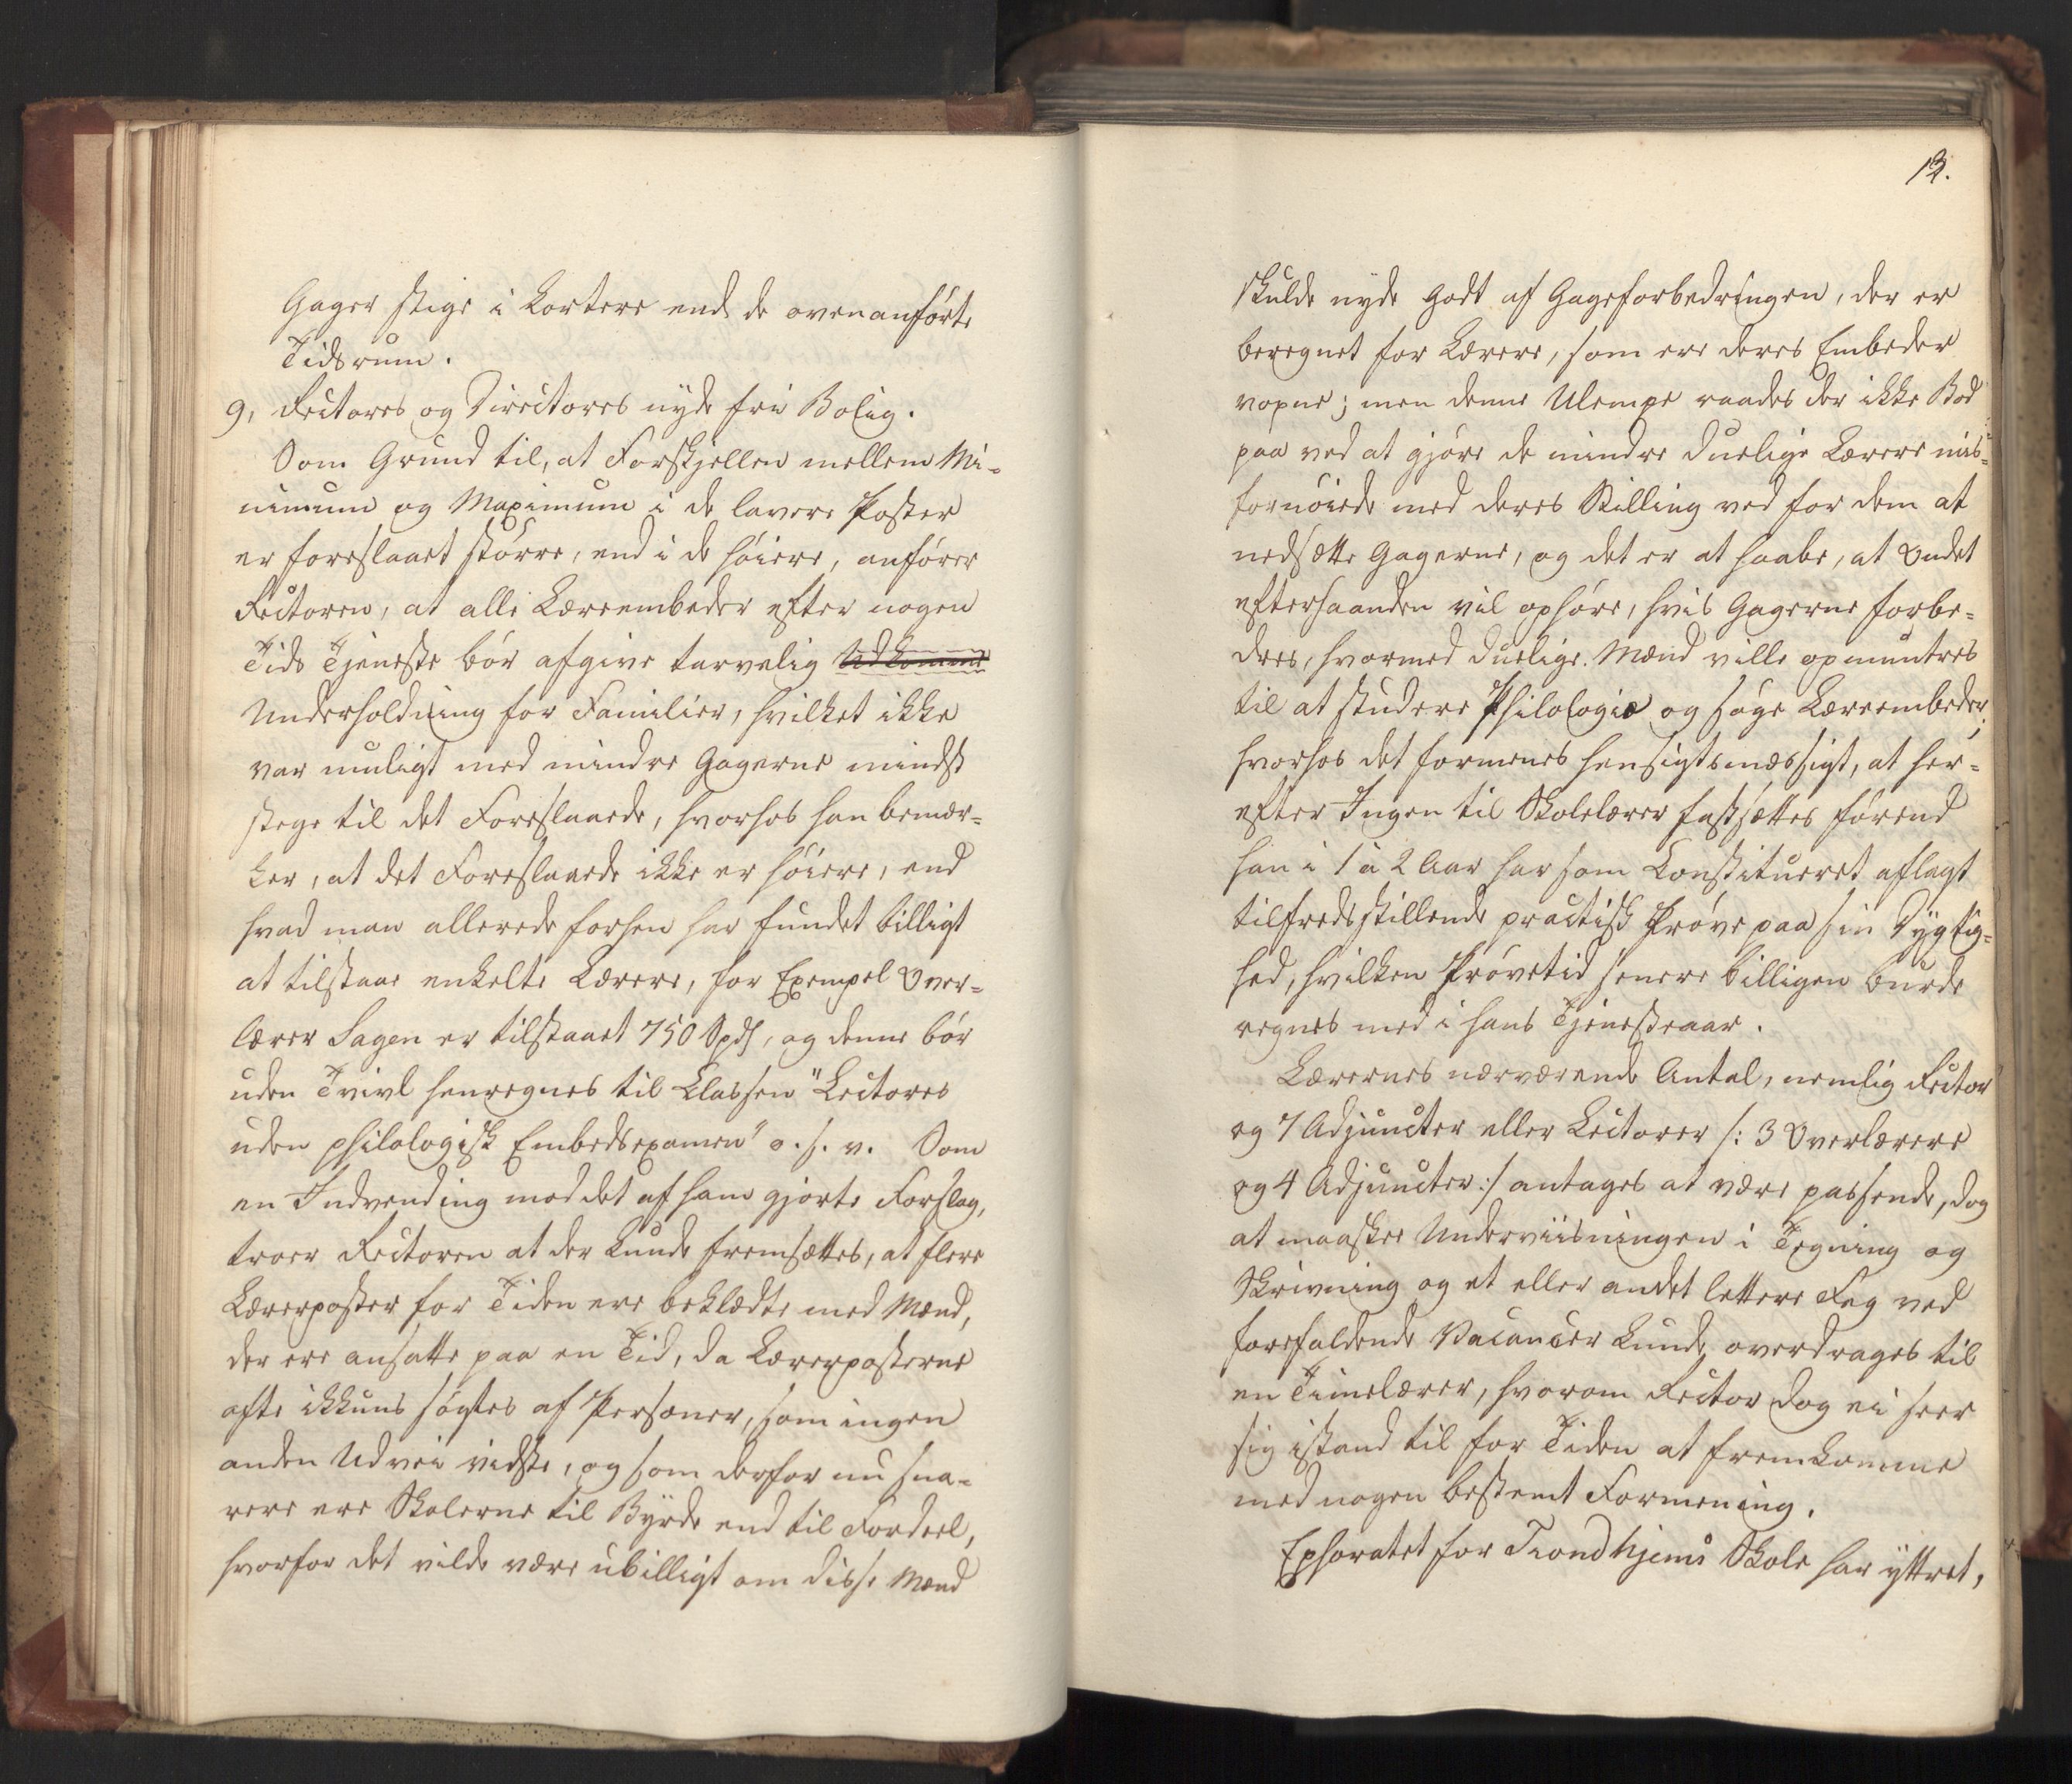 Gager stige i kortere end de ovenanførte
Tidsrum.
9, Rectores og Directores nyde fri Bolig.
Som Grund til, at Forskjellen mellem Mi-
nimum og Maximum i de lavere Poster
er foreslaaet større, end i de høiere, anfører
Rectoren, at alle Læreembeder efter nogen
Tids Tjeneste bør afgive tarvelig Udkomme
Underholdning for Familier, hvilket ikke
var muligt med mindre Gagerne mindst
stege til det Foreslaaede, hvorhos han bemær-
ker, at det Foreslaaede ikke er høiere, end
hvad man allerede forhen har fundet billigt
at tilstaae enkelte Lærere, for Exempel Over-
lærer Sagen er tilstaaet 750 Spd, og denne bør
uden Tvivl henregnes til Classen "Lectores
uden philologisk Embedsexamen" o. s. v. Som
en Indvending mod det af ham gjorte Forslag,
troer Rectoren at der kunde fremsættes, at flere
Lærerposter for Tiden ere beklædte med Mænd,
der ere ansatte paa en Tid, da Lærerposterne
ofte ikkuns søgtes af Personer, som ingen
anden Udvei vidste, og som derfor nu sna-
rere ere Skolerne til Byrde end til Fordeel,
hvorfor det vilde være ubilligt om disse Mænd
13.
skulde nyde godt af Gageforbedringen, der er
beregnet for Lærere, som ere deres Embeder
voxne; men denne Ulempe raades der ikke Bod
paa ved at gjøre de mindre duelige Lærere mis-
fornøiede med deres Stilling ved for dem at
nedsætte Gagerne, og det er at haabe, at Ondet
efterhaanden vil ophøre, hvis Gagerne forbe-
dres, hvormed duelige Mænd ville opmuntres
til at studere Philologie og søge Læreembeder,
hvorhos det formenes hensigtsmæssigt, at her-
efter Ingen til Skolelærer fastsættes førend
han i 1 à 2 Aar har som Constitueret aflagt
tilfredsstillende practisk Prøve paa sin Dygtig-
hed, hvilken Prøvetid senere billigen burde
regnes med i hans Tjenesteaar.
Lærernes nærværende Antal, nemlig Rector
og 7 Adjuncter eller Lectorer /: 3 Overlærere
og 4 Adjuncter :/ antages at være passende, dog
at maaskee Underviisningen i Tegning og
Skrivning og et eller andet lettere Fag ved
forefaldende Vacancer kunde overdrages til
en Timelærer, hvorom Rector dog ei seer
sig istand til for Tiden at fremkomme
med nogen bestemt Formening.
Ephoratet for Trondhjems Skole har yttret,